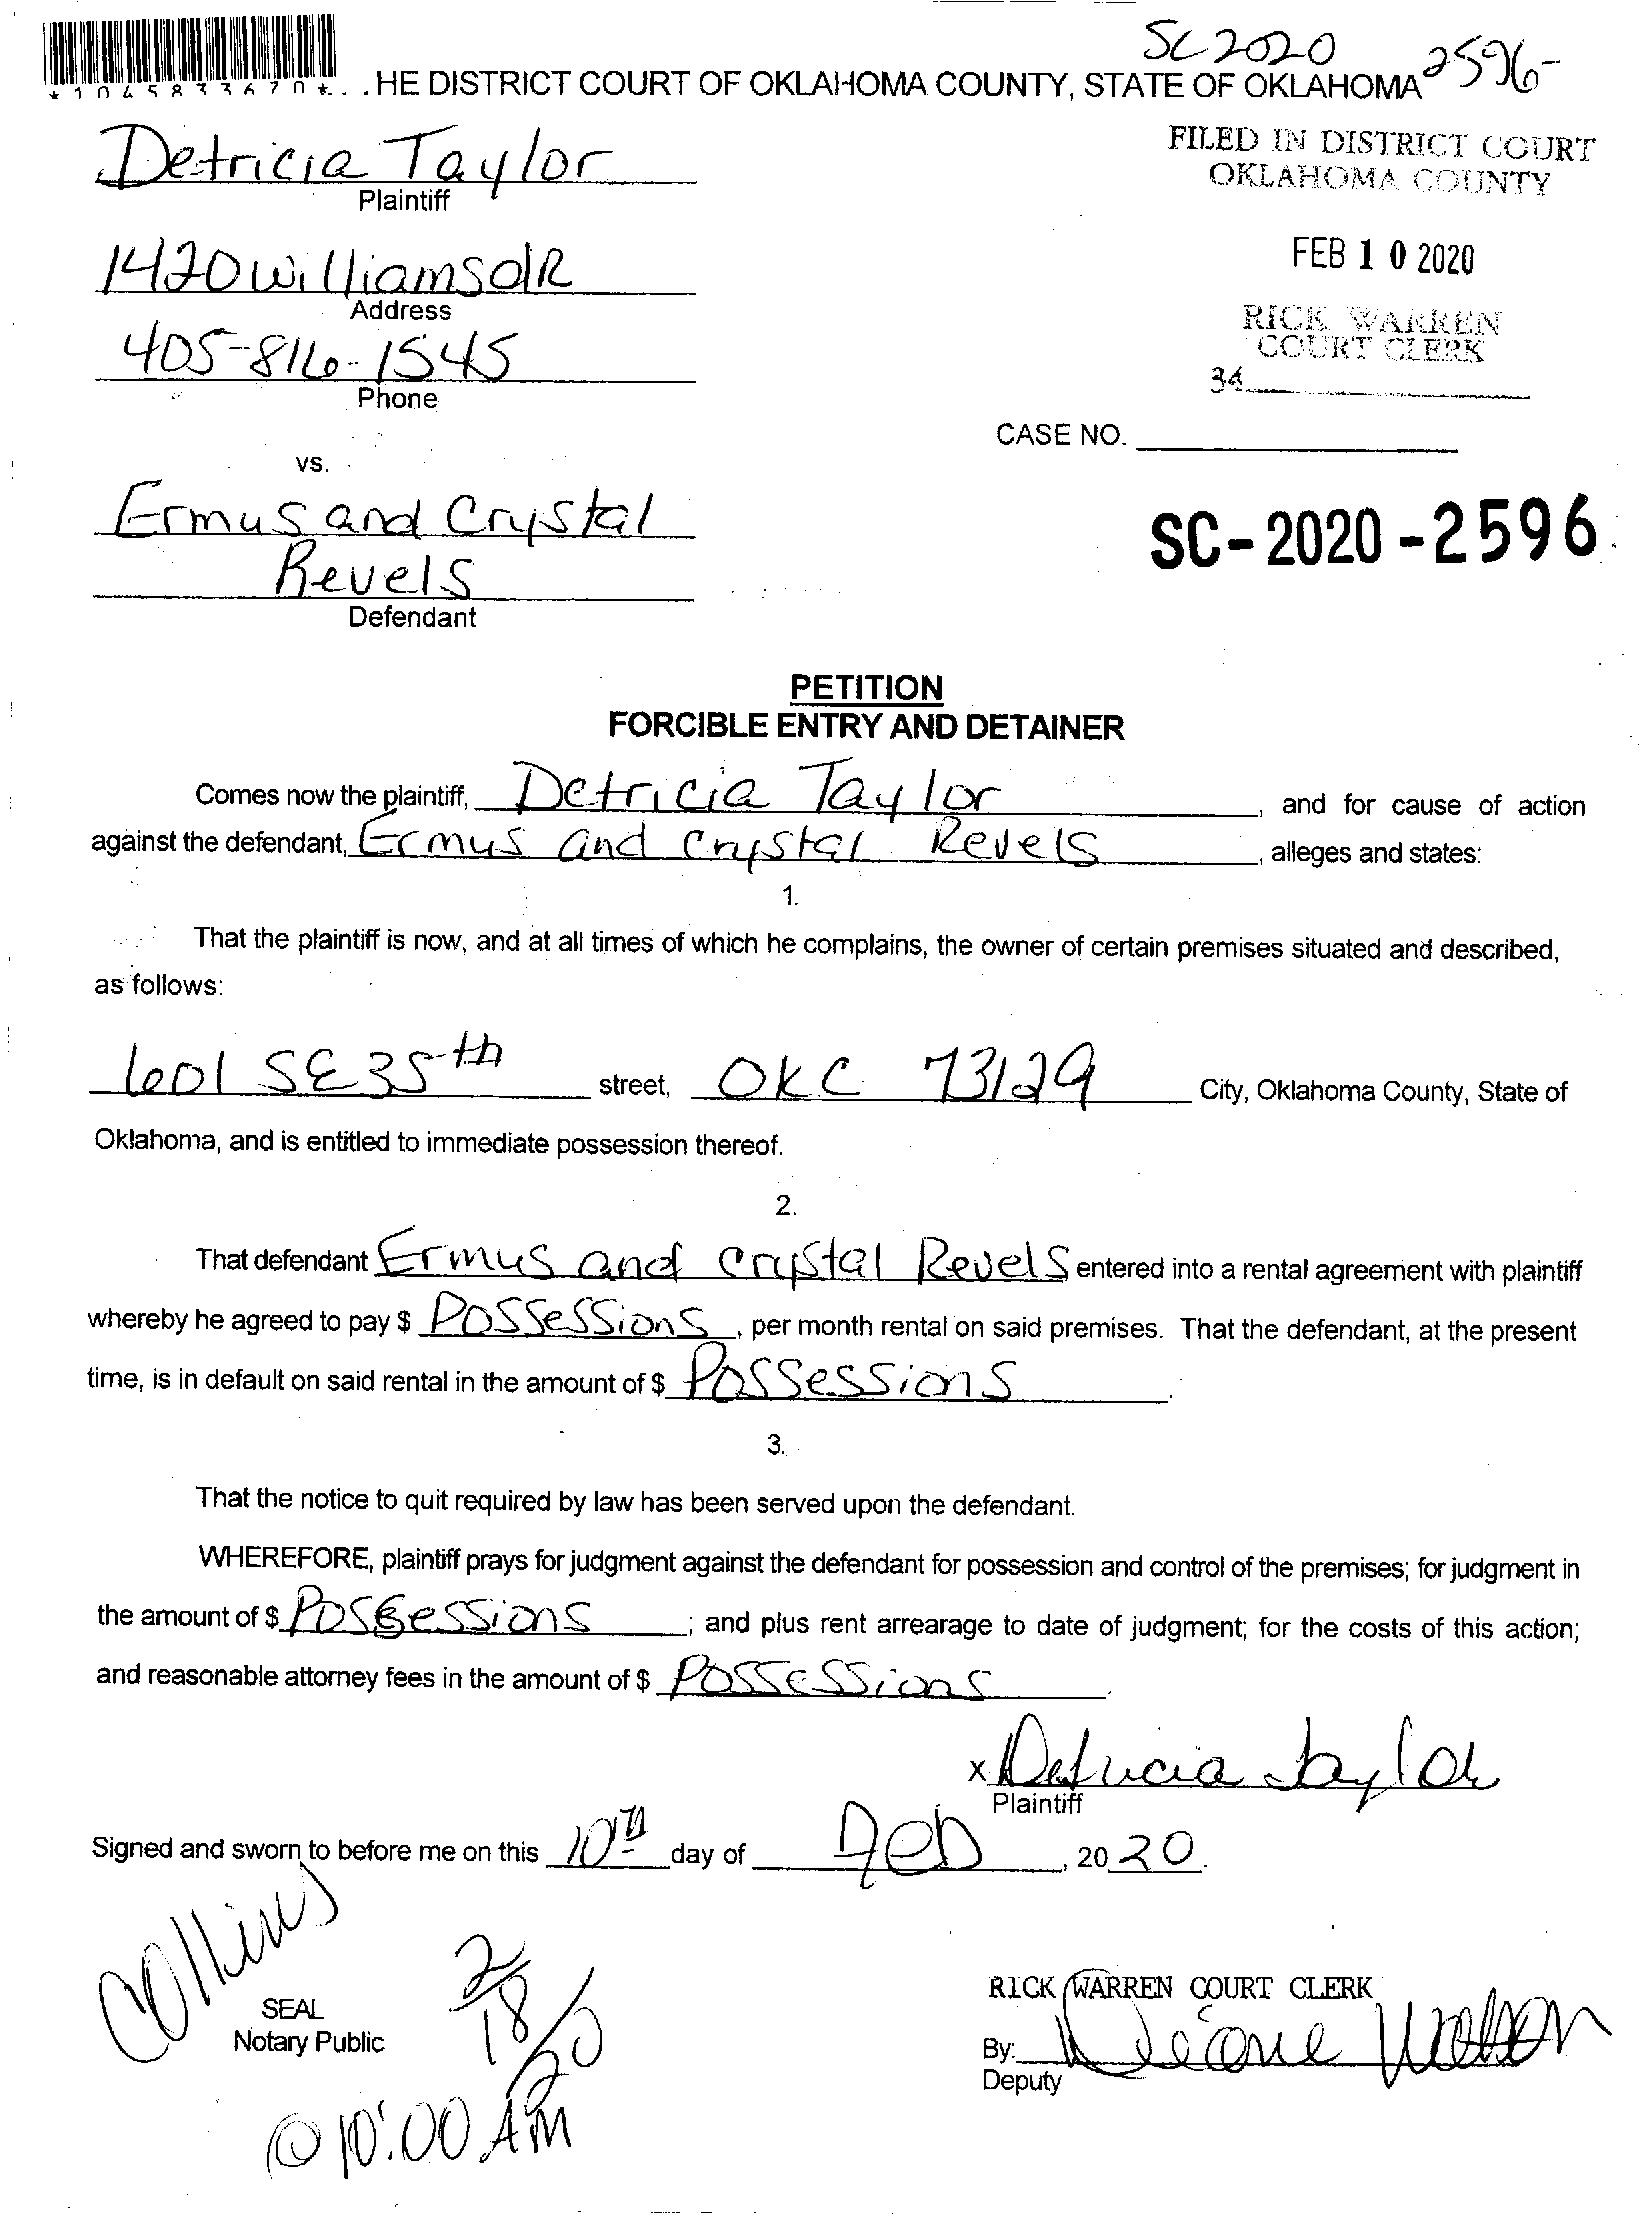 SC2020 2596-
*1045833670*. . .HE DISTRICT COURT OF OKLAHOMA COUNTY, STATE OF OKLAHOMA
FILED IN DISTRICT COURT
OKLAHOMA COUNTY
FEB 10 2020
RICK WARREN
COURT CLERK
34
Detricia Taylor
Plaintiff
1420 Williams dR
Address
405-816-1545
Phone
CASE NO.
vs.
SC-2020-2596
Ermus and Crystal
Revels
Defendant
PETITION
FORCIBLE ENTRY AND DETAINER
Comes now the plaintiff, Detricia Taylor, and for cause of action
against the defendant, Ermus and Crystal Revels, alleges and states:
1.
That the plaintiff is now, and at all times of which he complains, the owner of certain premises situated and described,
as follows:
601 SE 35th street, OKC 73129 City, Oklahoma County, State of
Oklahoma, and is entitled to immediate possession thereof.
2.
That defendant Ermus and Crystal Revels entered into a rental agreement with plaintiff
whereby he agreed to pay $ Possessions, per month rental on said premises. That the defendant, at the present
time, is in default on said rental in the amount of $ Possessions.
3.
That the notice to quit required by law has been served upon the defendant.
WHEREFORE, plaintiff prays for judgment against the defendant for possession and control of the premises; for judgment in
the amount of $ Possessions; and plus rent arrearage to date of judgment; for the costs of this action;
and reasonable attorney fees in the amount of $ Possessions.
x Detricia Taylor
Plaintiff
Signed and sworn to before me on this 10TH day of Feb, 2020.
Collins
SEAL
Notary Public
2/18/20
@ 10:00 AM
RICK WARREN COURT CLERK
By:
Deputy